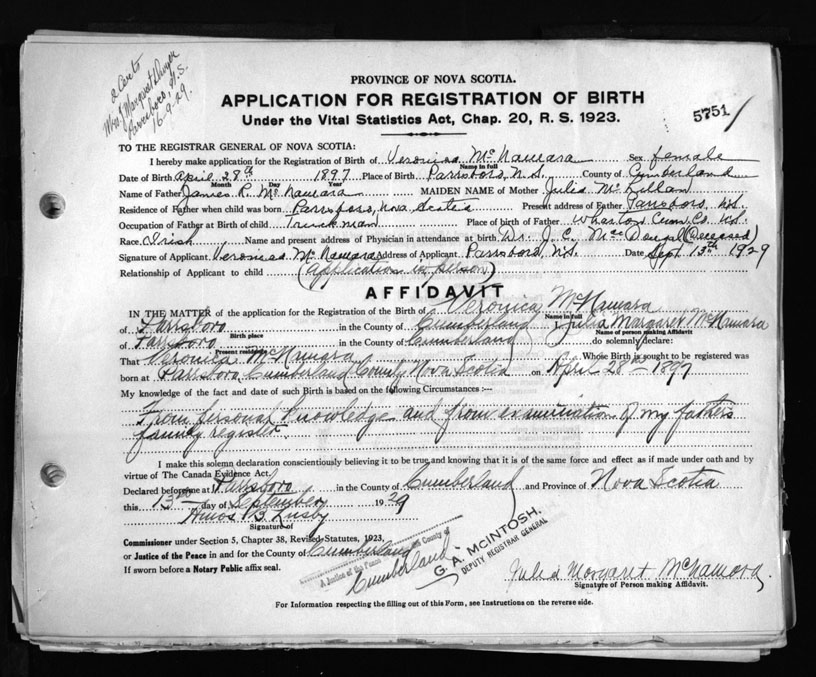 2 Certs
Mrs. J. Margaret Dwyer
Parrsboro, N.S.
16-9-29.
PROVINCE OF NOVA SCOTIA.
APPLICATION FOR REGISTRATION OF BIRTH
Under the Vital Statistics Act, Chap. 20, R. S. 1923.
5751
TO THE REGISTRAR GENERAL OF NOVA SCOTIA:
I hereby make application for the Registration of Birth of Veronica McNamara Sex female
Name in full
Date of Birth April 28th 1897 Place of Birth Parrsboro, N.S. County of Cumberland
Month Day Year
Name of Father James R. McNamara MAIDEN NAME of Mother Julia McLellan
Residence of Father when child was born Parrsboro, Nova Scotia Present address of Father Parrsboro, N.S.
Occupation of Father at Birth of child Truckman Place of birth of Father Wharton Cum. Co. N.S.
Race Irish Name and present address of Physician in attendance at birth Dr. J. C. MacDougal (Deceased)
Signature of Applicant Veronica McNamara Address of Applicant Parrsboro, N.S. Date Sept 13th 1929
Relationship of Applicant to child (Application in person)
AFFIDAVIT
IN THE MATTER of the application for the Registration of the Birth of Veronica McNamara
Name in Full
of Parrsboro in the County of Cumberland I Julia Margaret McNamara
Birth place Name of person making Affidavit
of Parrsboro in the County of Cumberland do solemnly declare:
Present residence
That Veronica McNamara Whose Birth is sought to be registered was
born at Parrsboro Cumberland County Nova Scotia on April 28th 1897
My knowledge of the fact and date of such Birth is based on the following Circumstances :—
From personal knowledge and from examination of my father's
family register.
I make this solemn declaration conscientiously believing it to be true, and knowing that it is of the same force and effect as if made under oath and by
virtue of The Canada Evidence Act.
Declared before me at Parrsboro in the County of Cumberland and Province of Nova Scotia
this 13th day of September 1929
Amos B. Lusby
Signature of
Commissioner under Section 5, Chapter 38, Revised Statutes, 1923,
or Justice of the Peace in and for the County of Cumberland
If sworn before a Notary Public affix seal.
A Justice of the Peace County of
Cumberland
G. A. McINTOSH,
DEPUTY REGISTRAR GENERAL
Julia Margaret McNamara
Signature of Person making Affidavit.
For Information respecting the filling out of this Form, see Instructions on the reverse side.